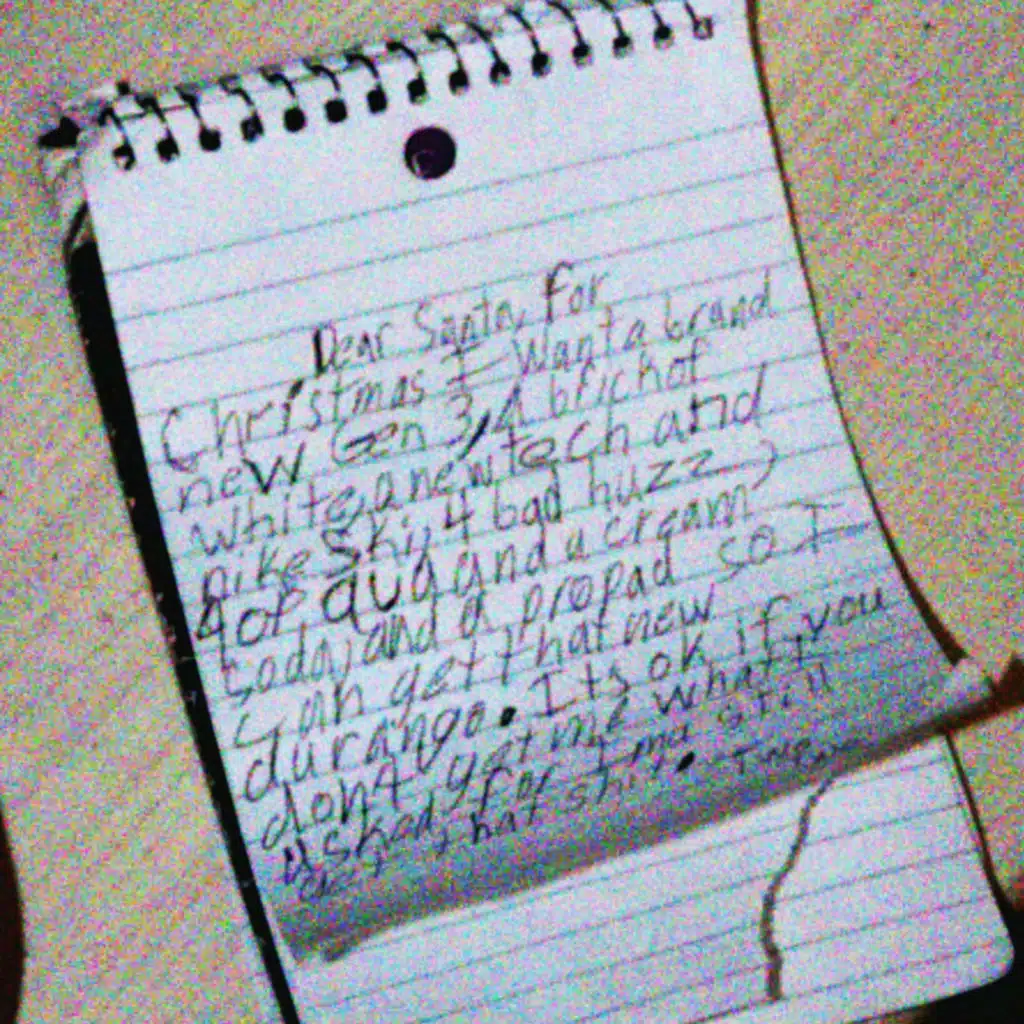 Dear Santa, For
Christmas I Want a brand
new Gen 3, A brich of
white, a new tech and
nike Ski, 4 bad huzz,
4oP, quA and a cream
Soda, and a propad so I
can get that new
durango. Its ok if you
dont get me what I
asked for Ima still
get that shit.